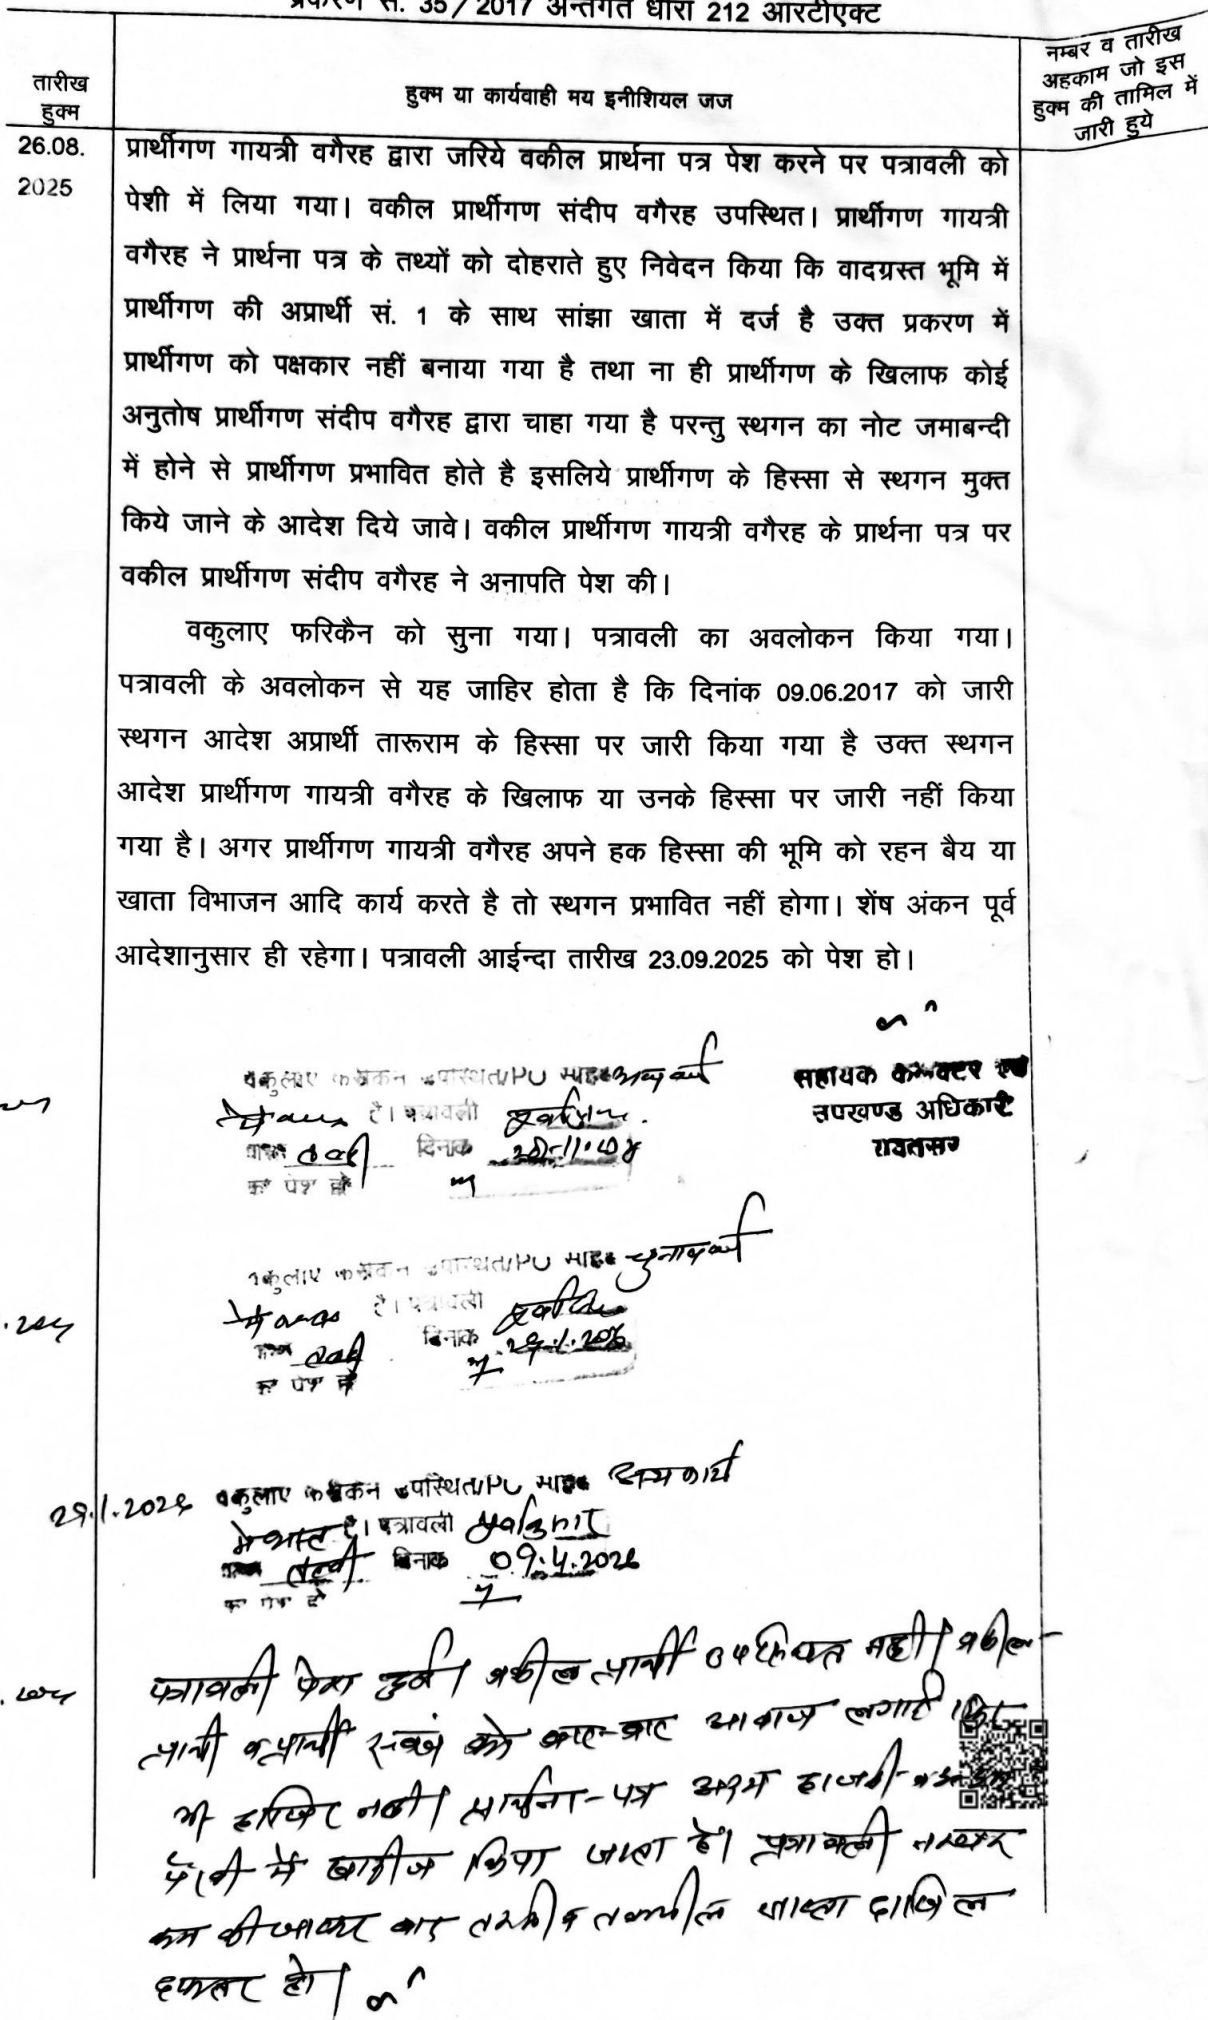 प्रकरण सं. 35/2017 अन्तर्गत धारा 212 आरटीएक्ट
तारीख
हुक्म
हुक्म या कार्यवाही मय इनीशियल जज
नम्बर व तारीख
अहकाम जो इस
हुक्म की तामिल में
जारी हुये
26.08.
2025
प्रार्थीगण गायत्री वगैरह द्वारा जरिये वकील प्रार्थना पत्र पेश करने पर पत्रावली को
पेशी में लिया गया। वकील प्रार्थीगण संदीप वगैरह उपस्थित। प्रार्थीगण गायत्री
वगैरह ने प्रार्थना पत्र के तथ्यों को दोहराते हुए निवेदन किया कि वादग्रस्त भूमि में
प्रार्थीगण की अप्रार्थी सं. 1 के साथ सांझा खाता में दर्ज है उक्त प्रकरण में
प्रार्थीगण को पक्षकार नहीं बनाया गया है तथा ना ही प्रार्थीगण के खिलाफ कोई
अनुतोष प्रार्थीगण संदीप वगैरह द्वारा चाहा गया है परन्तु स्थगन का नोट जमाबन्दी
में होने से प्रार्थीगण प्रभावित होते है इसलिये प्रार्थीगण के हिस्सा से स्थगन मुक्त
किये जाने के आदेश दिये जावे। वकील प्रार्थीगण गायत्री वगैरह के प्रार्थना पत्र पर
वकील प्रार्थीगण संदीप वगैरह ने अनापति पेश की।
वकुलाए फरिकैन को सुना गया। पत्रावली का अवलोकन किया गया।
पत्रावली के अवलोकन से यह जाहिर होता है कि दिनांक 09.06.2017 को जारी
स्थगन आदेश अप्रार्थी तारूराम के हिस्सा पर जारी किया गया है उक्त स्थगन
आदेश प्रार्थीगण गायत्री वगैरह के खिलाफ या उनके हिस्सा पर जारी नहीं किया
गया है। अगर प्रार्थीगण गायत्री वगैरह अपने हक हिस्सा की भूमि को रहन बैय या
खाता विभाजन आदि कार्य करते है तो स्थगन प्रभावित नहीं होगा। शेंष अंकन पूर्व
आदेशानुसार ही रहेगा। पत्रावली आईन्दा तारीख 23.09.2025 को पेश हो।
सहायक कलक्टर एवं
उपखण्ड अधिकारी
रावतसर
वकुलाए उपस्थित/PO साहब
है। पत्रावली
दिनांक
को पेश हो
वकुलाए उपस्थित/PO साहब चुनाव कार्य
है। पत्रावली
दिनांक 29.1.2026
को पेश हो
29.1.2026 वकुलाए उपस्थित/PO साहब राज्य कार्य
मे व्यस्त है। पत्रावली
दिनांक 09.4.2026
को पेश हो
पत्रावली पेश हुई। वकील प्रार्थी उपस्थित नही। वकील
प्रार्थी व प्रार्थी स्वयं को बार-बार आवाज लगाई
भी हाजिर नही। प्रार्थना-पत्र अदम हाजरी
पैरवी में खारीज किया जाता है। पत्रावली नम्बर
कम की जाकर बाद दाखिल
दफ्तर हो।